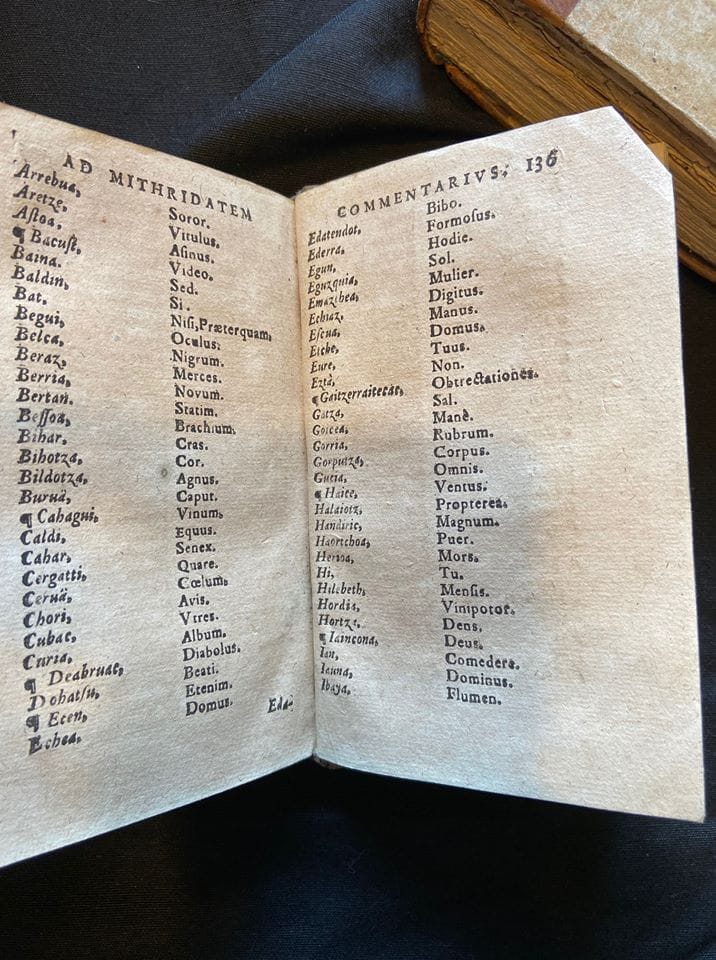 AD MITHRIDATEM
Arrebua, Soror.
Aretze, Vitulus.
Aſtoa, Aſinus.
¶ Bacuſt, Video.
Baina. Sed.
Baldin, Si.
Bat. Niſi, Præterquam,
Begui, Oculus.
Belca, Nigrum.
Beraz, Merces.
Berria, Novum.
Bertan. Statim.
Beſſoa, Brachium.
Bihar, Cras.
Bihotza, Cor.
Bildotza, Agnus.
Buruä, Caput.
¶ Cahagui, Vinum,
Caldi, Equus.
Cahar, Senex.
Cergatti, Quare.
Ceruä, Cœlum,
Chori, Avis.
Cubac, Vtres.
Curia, Album.
¶ Deabruac, Diabolus.
Dohatſu, Beati.
¶ Ecen, Etenim.
Echea. Domus.
Eda-
COMMENTARIVS. 136
Edatendot, Bibo.
Ederra, Formoſus.
Egun, Hodie.
Eguzquia, Sol.
Emazihea, Mulier.
Echiaz, Digitus.
Eſcua, Manus.
Etche, Domus,
Eure, Tuus.
Ezta, Non.
¶ Gaitzerraitecac, Obtrectationes.
Gatza, Sal.
Goicea, Manè.
Gorria, Rubrum.
Gorputza, Corpus.
Gucia, Omnis.
¶ Haice, Ventus.
Halaiotz, Propterea.
Handiric, Magnum.
Haortchoa, Puer.
Herioa, Mors.
Hi, Tu.
Hilebeth, Menſis.
Hordia, Vinipotor.
Hortze, Dens,
¶ Iaincona, Deus.
Ian, Comedere.
Iauna, Dominus.
Ibaya, Flumen.